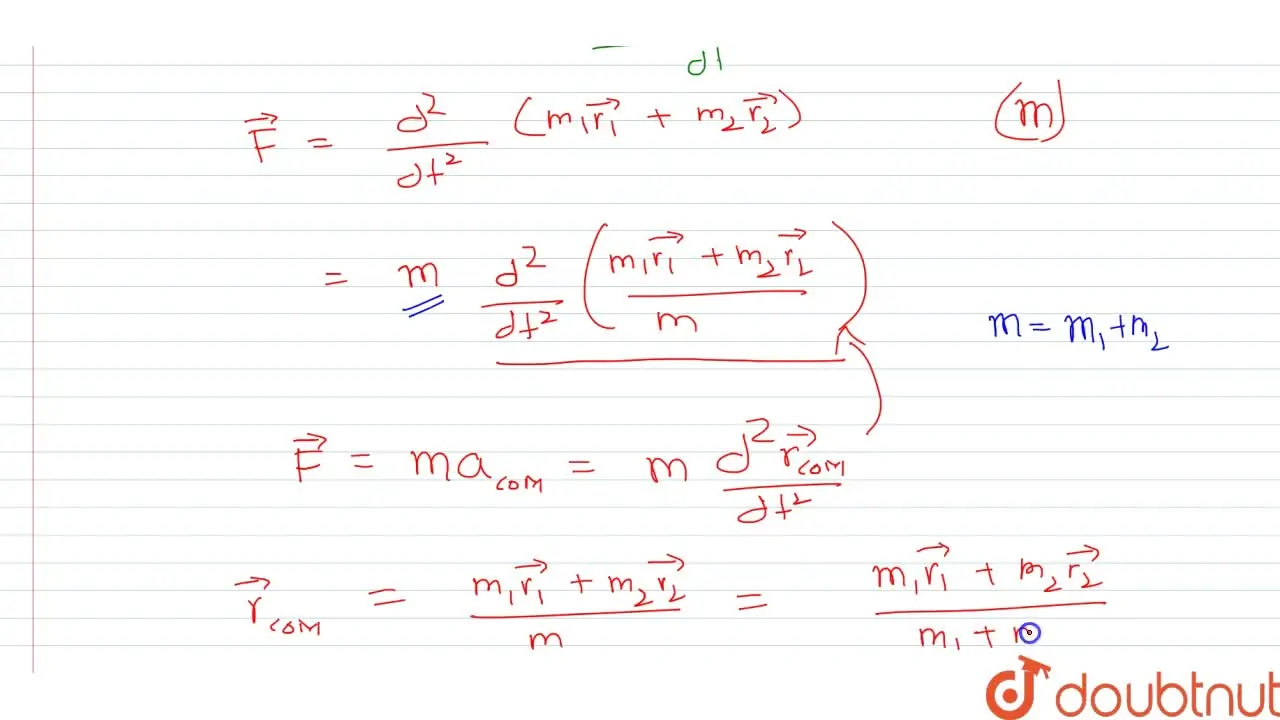 dt
F⃗ = d²/dt² (m₁r₁⃗ + m₂r₂⃗) (m)
= m d²/dt² ((m₁r₁⃗ + m₂r₂⃗)/m)
m = m₁+m₂
F⃗ = ma_COM = m d²r⃗_COM/dt²
r⃗_COM = (m₁r₁⃗ + m₂r₂⃗)/m = (m₁r₁⃗ + m₂r₂⃗)/(m₁ + m
doubtnut